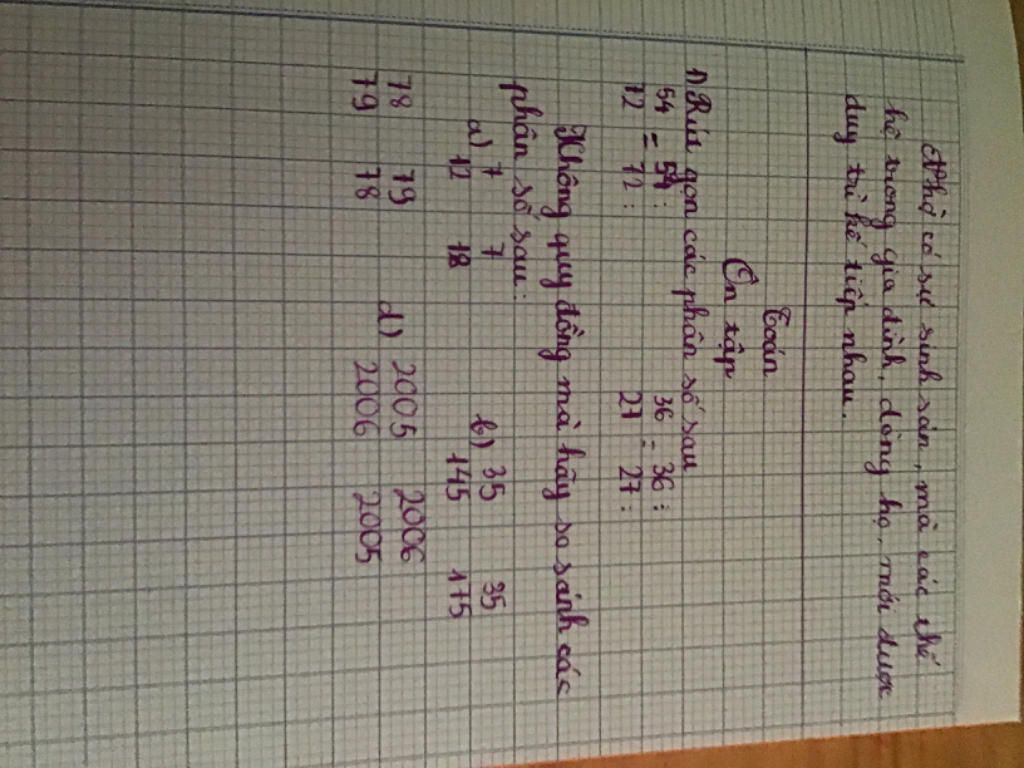 Nhờ có sự sinh sản, mà các thế
hệ trong gia đình, dòng họ, mới được
duy trì kế tiếp nhau.
Toán
Ôn tập
1) Rút gọn các phân số sau
54 = 54 : 36 = 36 :
72 72 : 27 27 :
Không quy đồng mà hãy so sánh các
phân số sau:
a) 7 7 b) 35 35
12 18 145 175
78 79 d) 2005 2006
79 78 2006 2005